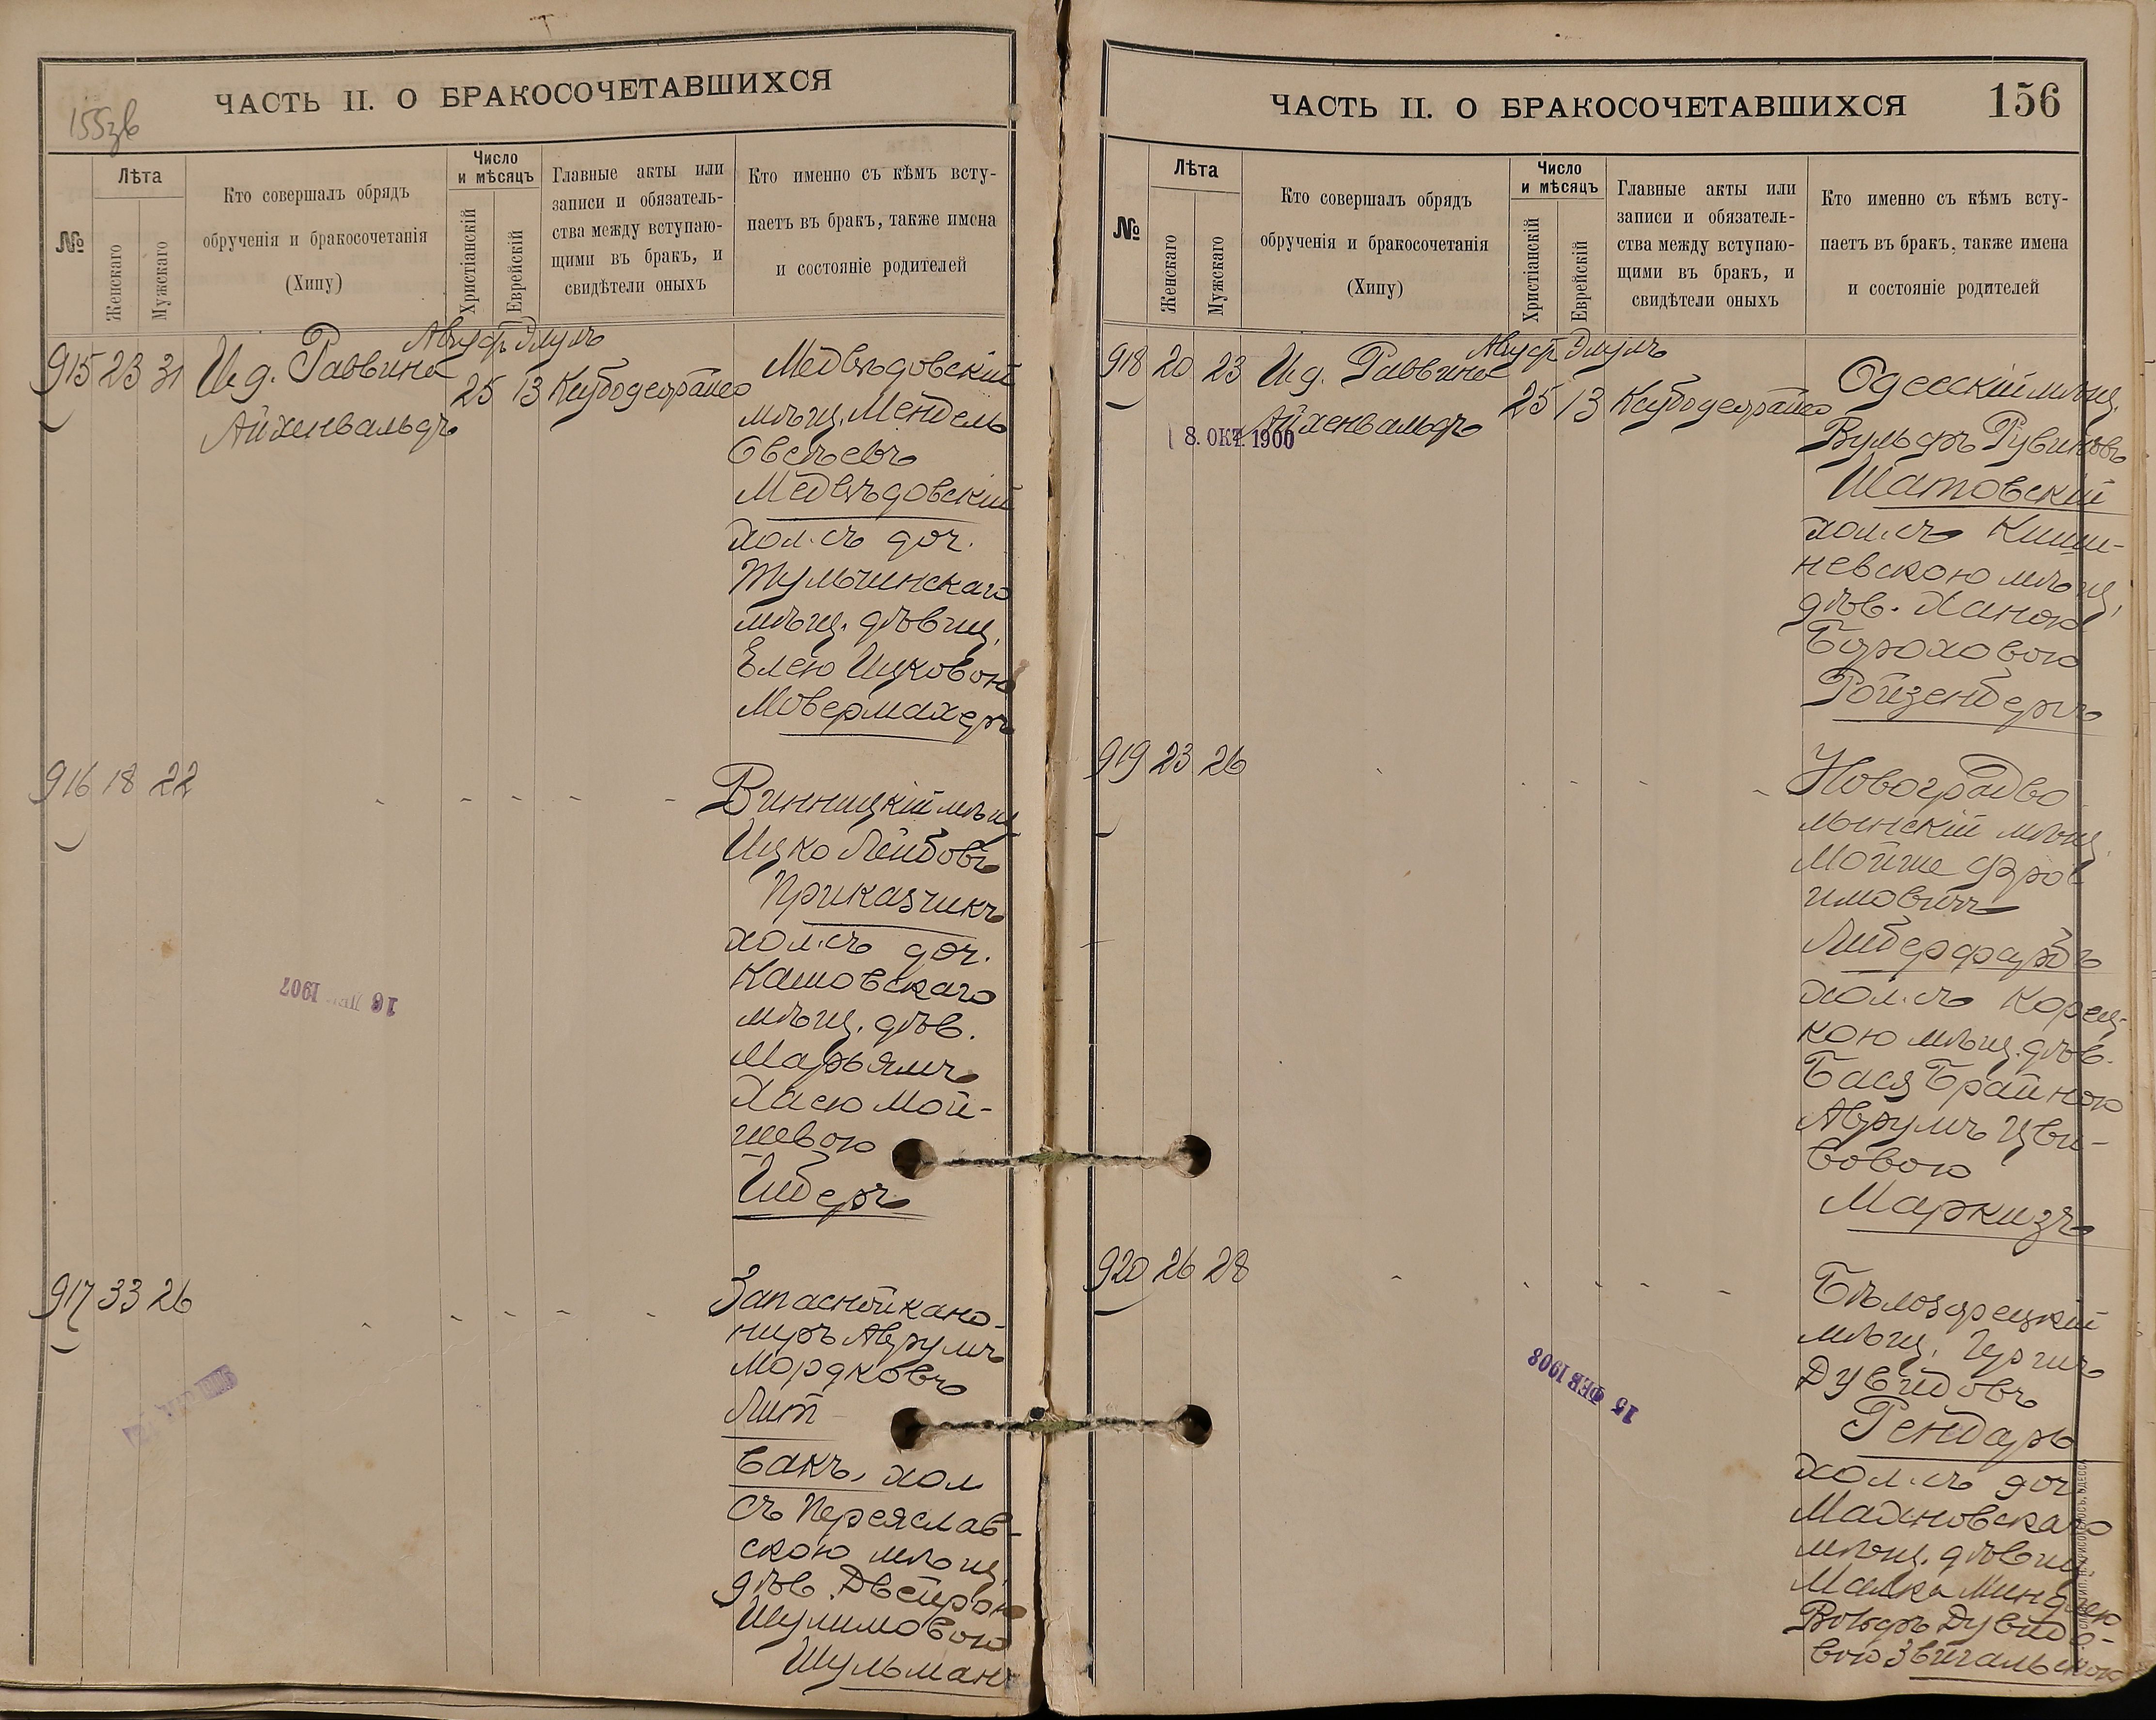 155зв
ЧАСТЬ II. О БРАКОСОЧЕТАВШИХСЯ
№
Лѣта
Женскаго
Мужскаго
Кто совершалъ обрядъ
обрученія и бракосочетанія
(Хипу)
Число
и мѣсяцъ
Христіанскій
Еврейскій
Главные акты или
записи и обязатель-
ства между вступаю-
щими въ бракъ, и
свидѣтели оныхъ
Кто именно съ кѣмъ всту-
паетъ въ бракъ, также имена
и состояніе родителей
Август Элулъ
915 23 31 И.д. Раввина 25 13
Айхенвальдъ
Медвѣдовскій
мѣщ. Мендель
Овсѣевъ
Медвѣдовскій
хол. съ доч.
Тульчинскаго
мѣщ. дѣвиц.
Елею Ицковою
Мовермахеръ
916 18 22
Винницкій мѣщ
Ицко Лейбовъ
Приказчикъ
хол. съ доч.
Катовскаго
мѣщ. дѣв.
Марьямъ
Хасю Мой-
шевою
Иберъ
16 1907
917 33 26
Запасной кано-
ниръ Аврумъ
Мордковъ
Лит
вакъ, хол
съ Переяслав-
скою мѣщ.
дѣв. Двейрою
Шулимовою
Шульман
ЧАСТЬ II. О БРАКОСОЧЕТАВШИХСЯ
156
№
Лѣта
Женскаго
Мужскаго
Кто совершалъ обрядъ
обрученія и бракосочетанія
(Хипу)
Число
и мѣсяцъ
Христіанскій
Еврейскій
Главные акты или
записи и обязатель-
ства между вступаю-
щими въ бракъ, и
свидѣтели оныхъ
Кто именно съ кѣмъ всту-
паетъ въ бракъ, также имена
и состояніе родителей
Август Элулъ
918 20 23 И.д. Раввина 25 13
Айхенвальдъ
8. ОКТ. 1900
Одесскій мѣщ.
Вульфъ Рувиновъ
Шатовскій
хол. съ Киши-
невскою мѣщ.
дѣв. Ханою
Бороховою
Ройзенбергъ
919 23 26
Новоградво
лынскій мѣщ.
Мойше Фрое
имовичъ
Либерфарбъ
хол. съ Корец-
кою мѣщ. дѣв.
Бася Брайною
Аврумъ Цви-
вовою
Маркизъ
920 26 28
Бѣлозерецкій
мѣщ. Гершъ
Дувидовъ
Гендаръ
хол. съ доч
Махновскаго
мѣщ. дѣвиц
Малка Миндлею
Вольфъ Дувидо-
вою Звигальскою
15 ФЕВ 1908